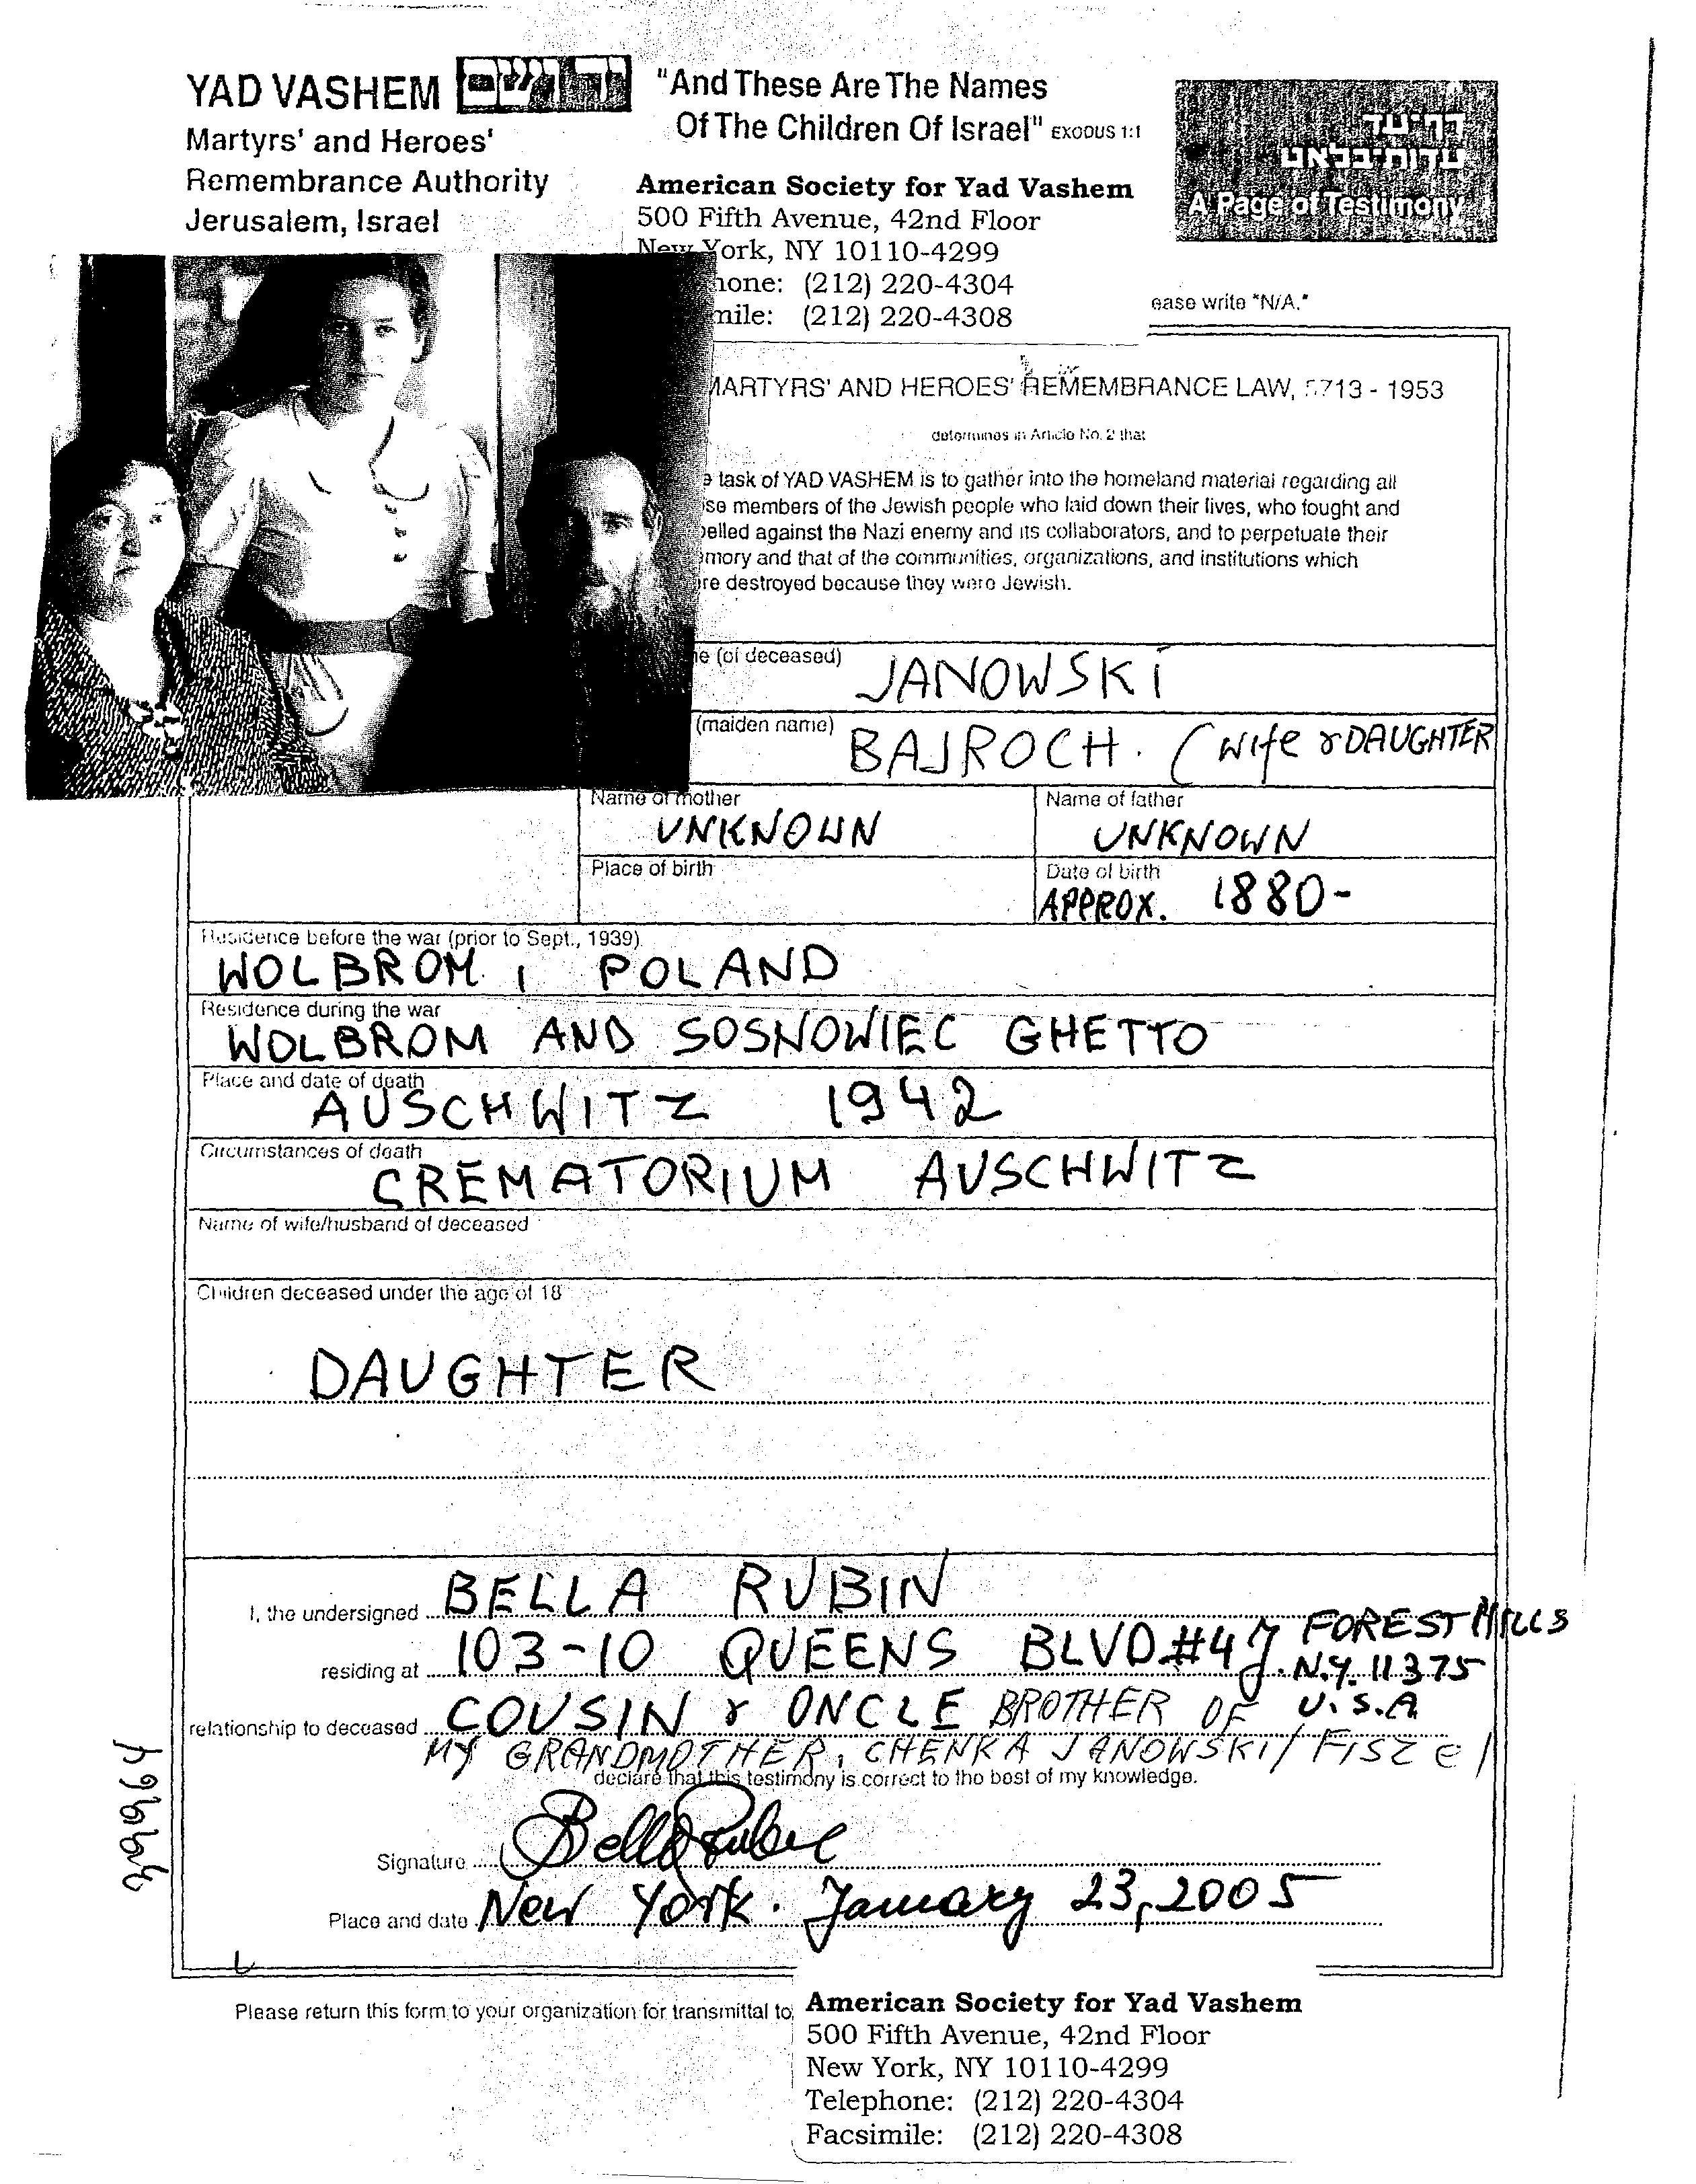 YAD VASHEM יד ושם
Martyrs' and Heroes'
Remembrance Authority
Jerusalem, Israel
"And These Are The Names
Of The Children Of Israel" EXODUS 1:1
American Society for Yad Vashem
500 Fifth Avenue, 42nd Floor
New York, NY 10110-4299
hone: (212) 220-4304
mile: (212) 220-4308
דף־עד
A Page of Testimony
ease write "N/A."
MARTYRS' AND HEROES' REMEMBRANCE LAW, 5713 - 1953
determines in Article No. 2 that
e task of YAD VASHEM is to gather into the homeland material regarding all
se members of the Jewish people who laid down their lives, who fought and
belled against the Nazi enemy and its collaborators, and to perpetuate their
emory and that of the communities, organizations, and institutions which
re destroyed because they were Jewish.
e (of deceased) JANOWSKI
(maiden name) BAJROCH. (Wife & DAUGHTER
Name of mother UNKNOWN
Name of father UNKNOWN
Place of birth
Date of birth APPROX. 1880-
Residence before the war (prior to Sept., 1939)
WOLBROM, POLAND
Residence during the war
WOLBROM AND SOSNOWIEC GHETTO
Place and date of death
AUSCHWITZ 1942
Circumstances of death
CREMATORIUM AUSCHWITZ
Name of wife/husband of deceased
Children deceased under the age of 18
DAUGHTER
I, the undersigned BELLA RUBIN
residing at 103-10 QUEENS BLVD #4J. FOREST HILLS
N.Y. 11375
U.S.A
relationship to deceased COUSIN & ONCLE BROTHER OF
MY GRANDMOTHER, CHENKA JANOWSKI/FISZEL
declare that this testimony is correct to the best of my knowledge.
Signature Bella Rubin
Place and date New York. January 23, 2005
Please return this form to your organization for transmittal to:
American Society for Yad Vashem
500 Fifth Avenue, 42nd Floor
New York, NY 10110-4299
Telephone: (212) 220-4304
Facsimile: (212) 220-4308